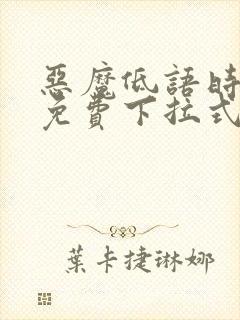 惡魔低語時
免費下拉式
葉卡捷琳娜